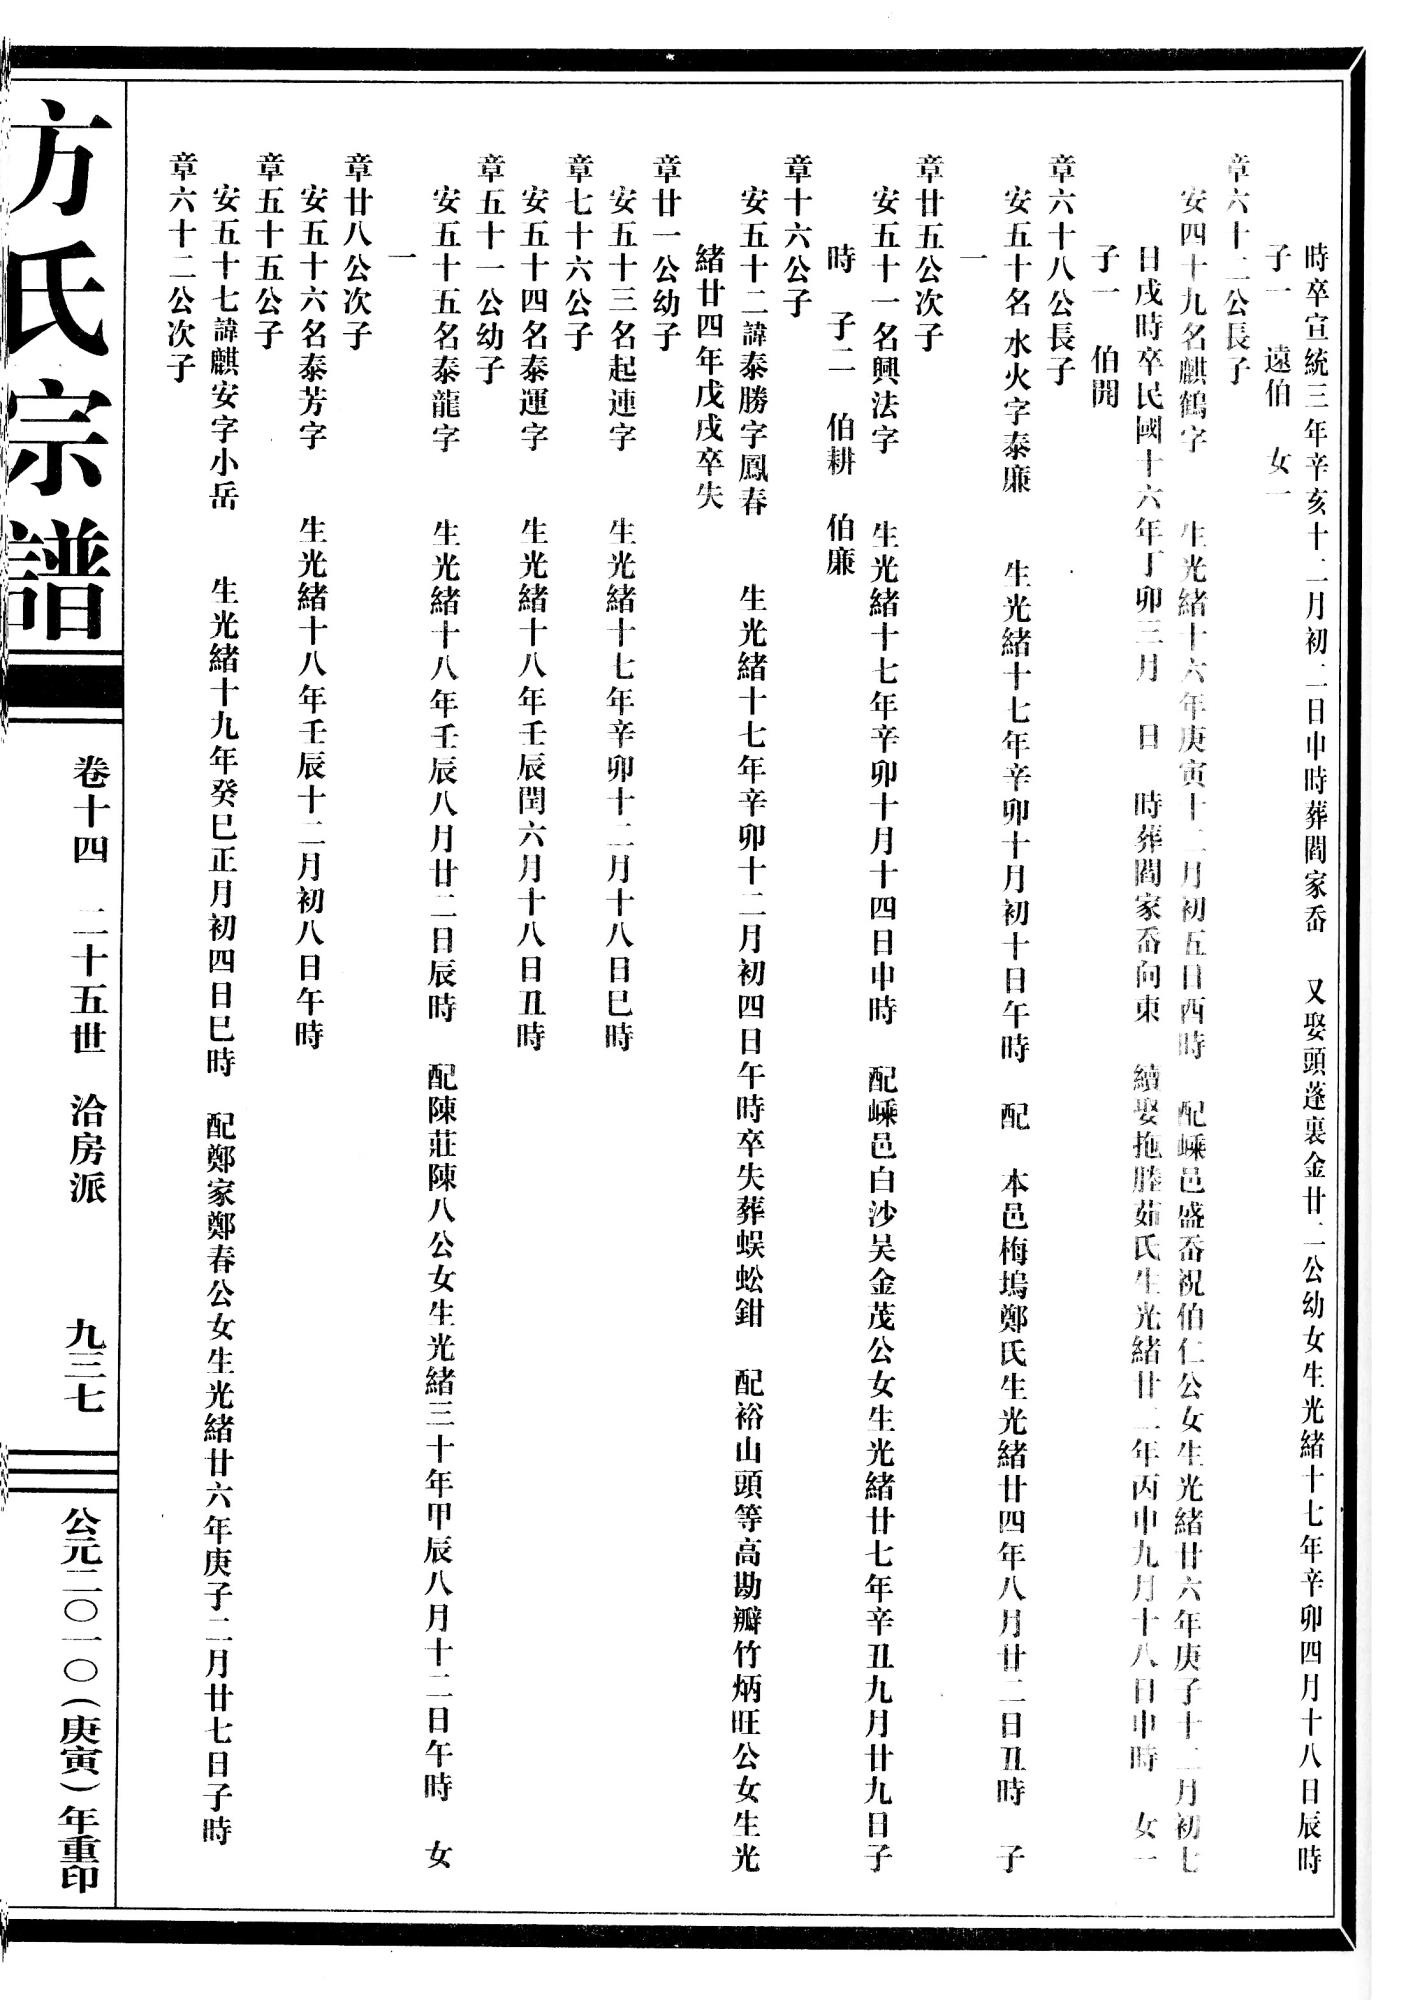 時卒宣統三年辛亥十二月初二日申時葬閻家岙　又娶頭蓬裏金廿二公幼女生光緒十七年辛卯四月十八日辰時
子一　遠伯　女一
章六十二公長子
安四十九名麒鶴字　生光緒十六年庚寅十二月初五日酉時　配嵊邑盛岙祝伯仁公女生光緒廿六年庚子十二月初七
日戌時卒民國十六年丁卯三月　日　時葬閻家岙向東　續娶拖塍茹氏生光緒廿二年丙申九月十八日申時　女一
子一　伯開
章六十八公長子
安五十名水火字泰廉　生光緒十七年辛卯十月初十日午時　配　本邑梅塢鄭氏生光緒廿四年八月廿二日丑時　子
一
章廿五公次子
安五十一名興法字　生光緒十七年辛卯十月十四日申時　配嵊邑白沙吴金茂公女生光緒廿七年辛丑九月廿九日子
時　子二　伯耕　伯廉
章十六公子
安五十二諱泰勝字鳳春　生光緒十七年辛卯十二月初四日午時卒失葬蜈蚣鉗　配裕山頭等高勘瓣竹炳旺公女生光
緒廿四年戊戌卒失
章廿一公幼子
安五十三名起連字　生光緒十七年辛卯十二月十八日巳時
章七十六公子
安五十四名泰運字　生光緒十八年壬辰閏六月十八日丑時
章五十一公幼子
安五十五名泰龍字　生光緒十八年壬辰八月廿二日辰時　配陳莊陳八公女生光緒三十年甲辰八月十二日午時　女
一
章廿八公次子
安五十六名泰芳字　生光緒十八年壬辰十二月初八日午時
章五十五公子
安五十七諱麒安字小岳　生光緒十九年癸巳正月初四日巳時　配鄭家鄭春公女生光緒廿六年庚子二月廿七日子時
章六十二公次子
方氏宗譜
卷十四　二十五世　洽房派　九三七
公元二〇一〇（庚寅）年重印